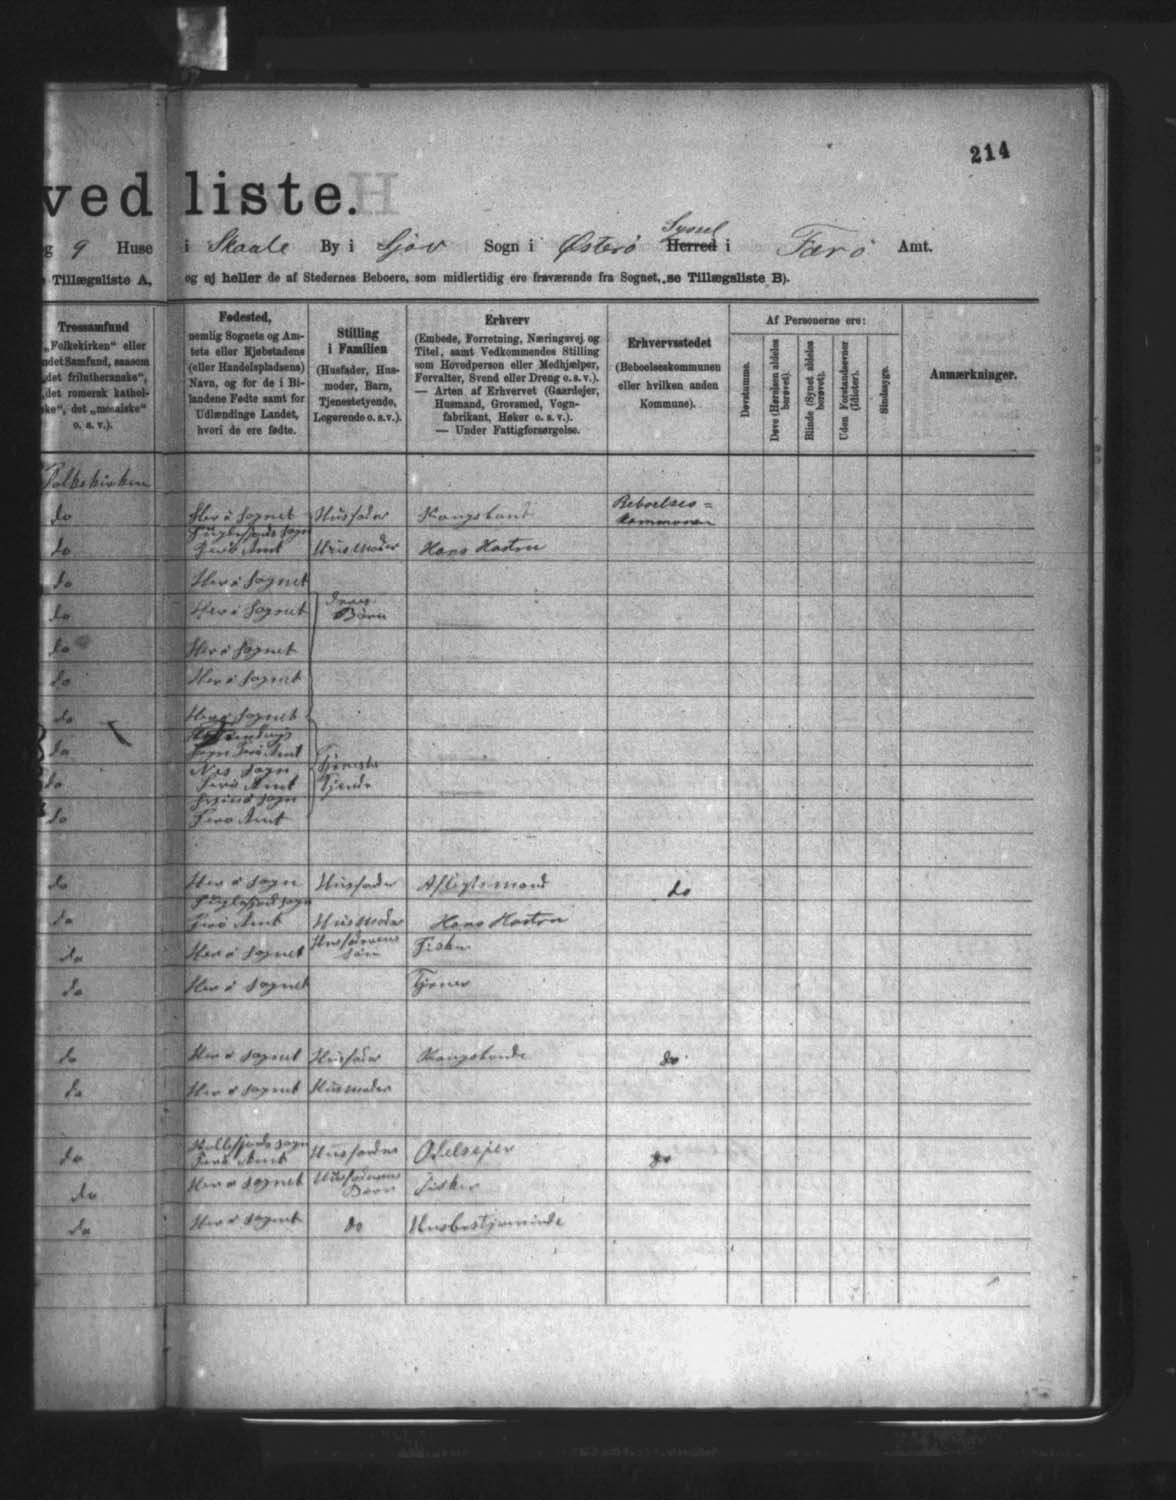 214
ved liste.
og 9 Huse i Skaale By i Sjov Sogn i Østerø Syssel Herred i Færø Amt.
Tillægsliste A, og ej heller de af Stedernes Beboere, som midlertidig ere fraværende fra Sognet, se Tillægsliste B).
Trossamfund
„Folkekirken“ eller
ndet Samfund, saasom
„det frilutheranske“,
„det romersk kathol-
ske“, det „mosaiske“
o. s. v.).
Fødested,
nemlig Sognets og Am-
tets eller Kjøbstadens
(eller Handelspladsens)
Navn, og for de i Bi-
landene Fødte samt for
Udlændinge Landet,
hvori de ere fødte.
Stilling
i Familien
(Husfader, Hus-
moder, Barn,
Tjenestetyende,
Logerende o. s. v.).
Erhverv
(Embede, Forretning, Næringsvej og
Titel, samt Vedkommendes Stilling
som Hovedperson eller Medhjælper,
Forvalter, Svend eller Dreng o. s. v.).
— Arten af Erhvervet (Gaardejer,
Husmand, Grovsmed, Vogn-
fabrikant, Høker o. s. v.).
— Under Fattigforsørgelse.
Erhvervsstedet
(Beboelseskommunen
eller hvilken anden
Kommune).
Af Personerne ere:
Døvstumme.
Døve (Hørelsen aldeles
berøvet).
Blinde (Synet aldeles
berøvet).
Uden Forstandsevner
(Idioter).
Sindssyge.
Anmærkninger.
Folkekirken
do Her i Sognet Husfader Kongsbonde Beboelses=
kommunen
Fuglefjords Sogn
do Færø Amt Husmoder Hans Hustru
do Her i Sognet
do Her i Sognet deres
Børn
do Her i Sognet
do Her i Sognet
do Her i Sognet
do Sogn Færø Amt
Nes Sogn Tjeneste
do Færø Amt Tyende
Sogn
do Færø Amt
do Her i Sogn Husfader Aftægtsmand do
Fuglefjord Sogn
do Færø Amt Husmoder Hans Hustru
do Her i Sognet Husfaderens
Søn Fisker
do Her i Sognet Tjener
do Her i Sognet Husfader Kongsbonde do
do Her i Sognet Husmoder
Kollefjords Sogn
do Færø Amt Husfader Odelsejer do
do Her i Sognet Husfaderens
Børn Fisker
do Her i Sognet do Husbestyrerinde